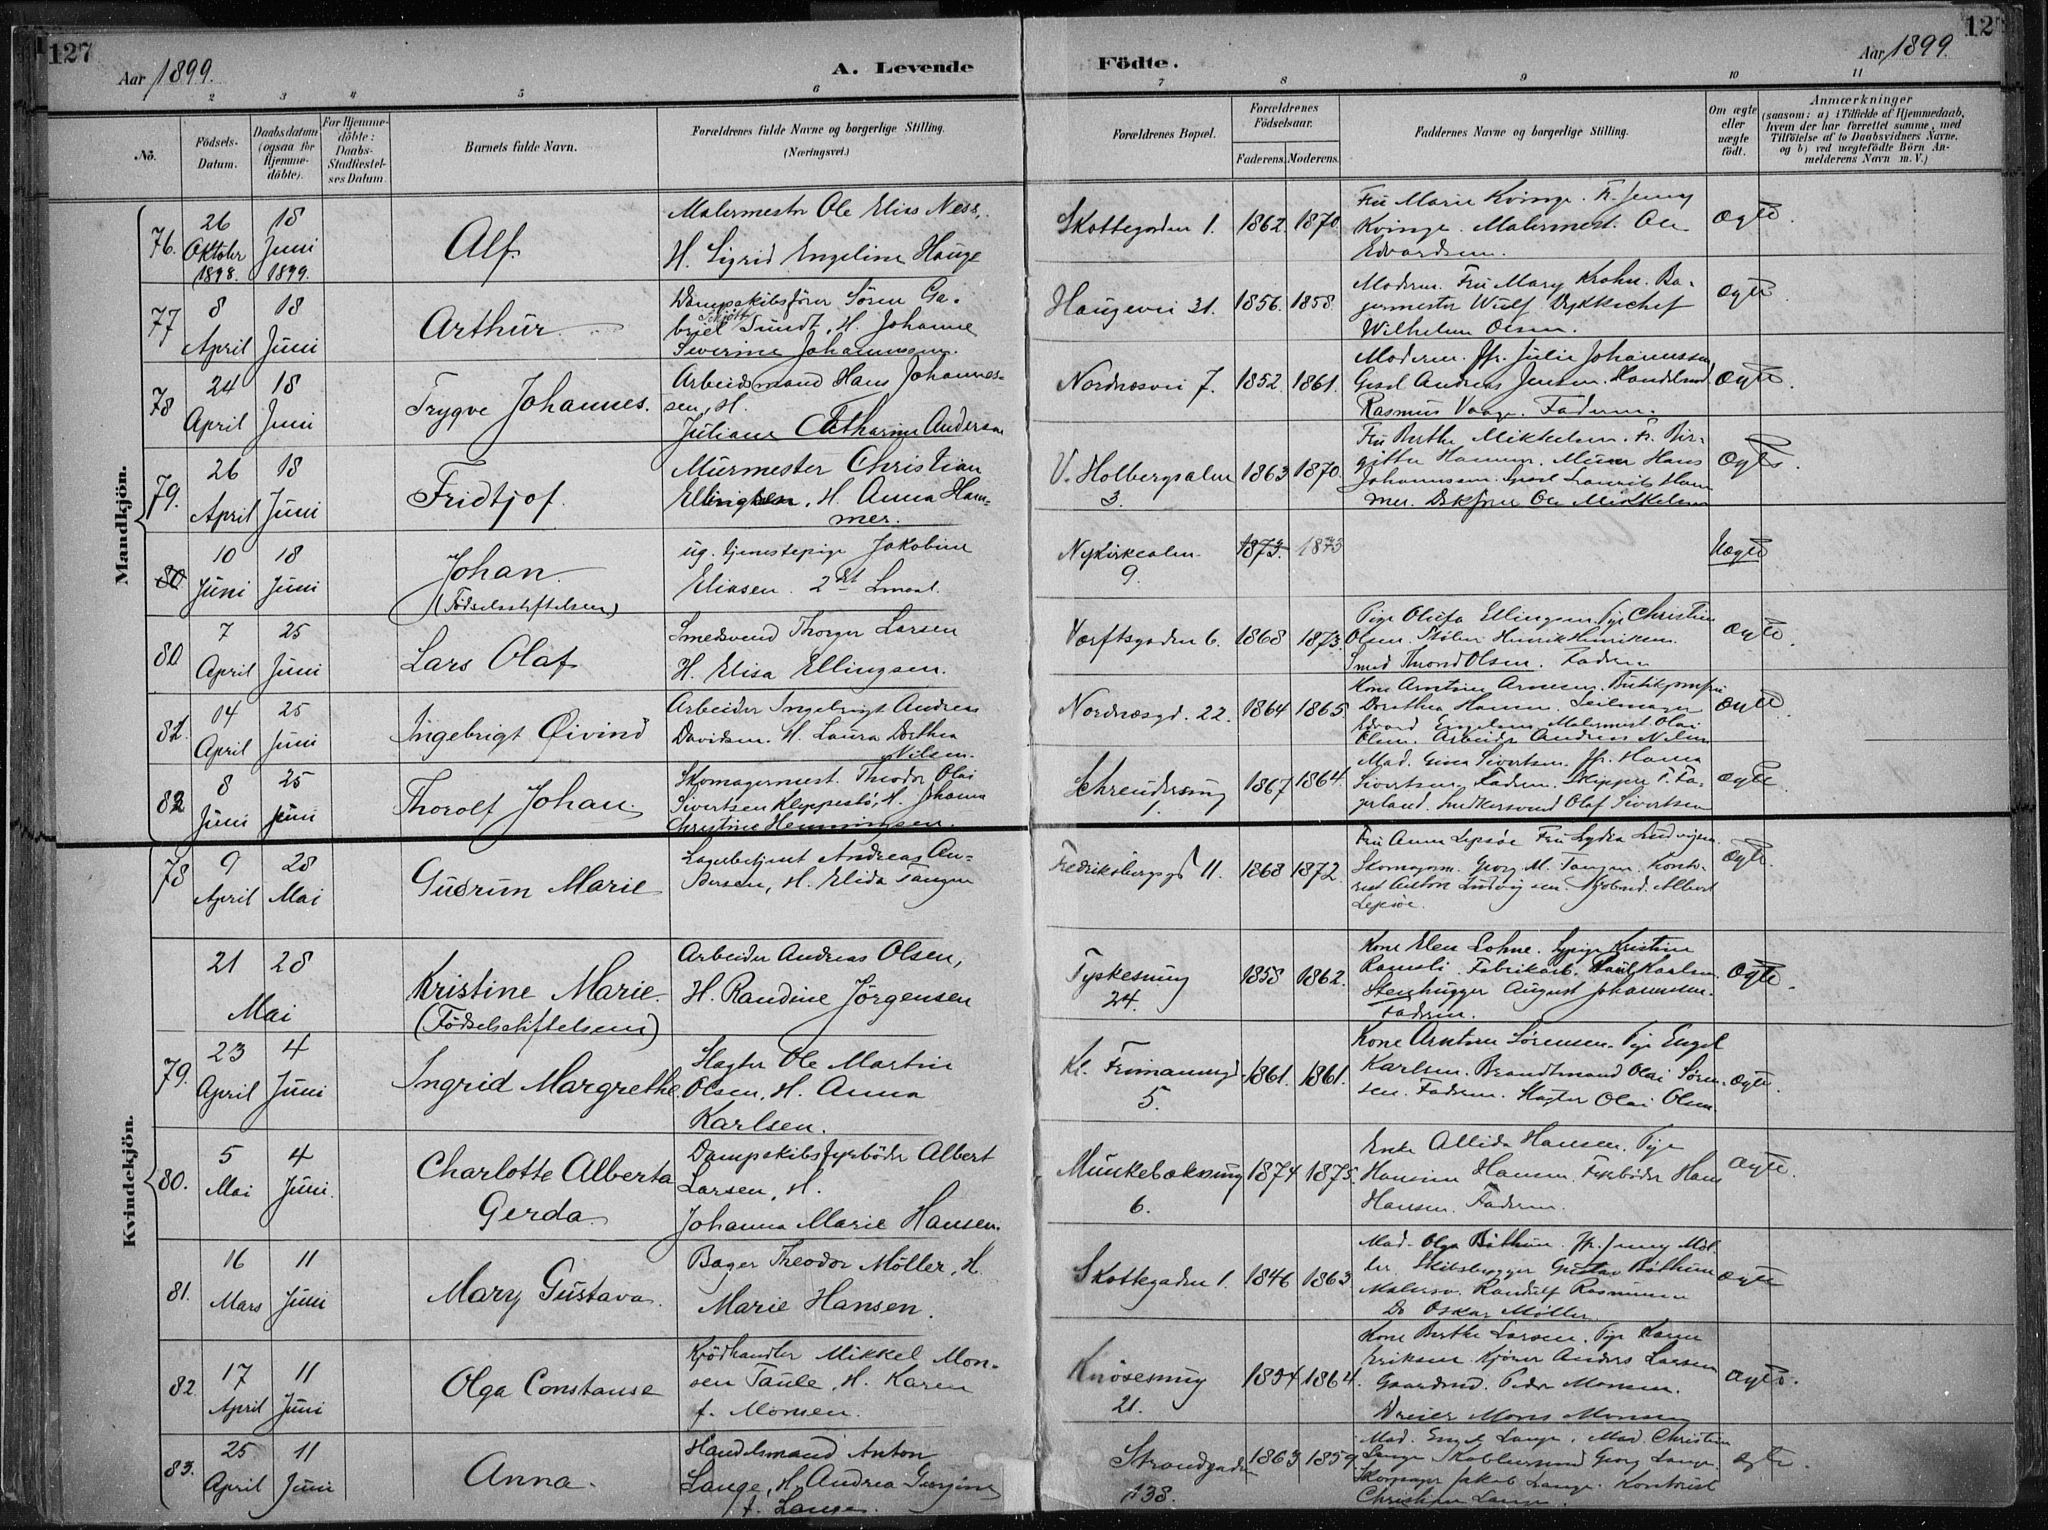 127
Aar 1899.
A. Levende
Födte.
Aar 1899.
12
2 3 4 5 6 7 8 9 10 11
No.
Födsels-
Datum.
Daabsdatum
(ogsaa for
Hjemme-
döbte).
For Hjemme-
döbte:
Daabs-
Stadfæstel-
ses Datum.
Barnets fulde Navn.
Forældrenes fulde Navne og borgerlige Stilling.
(Næringsvei.)
Forældrenes Bopæl.
Forældrenes
Födselsaar.
Faderens. Moderens.
Faddernes Navne og borgerlige Stilling.
Om ægte
eller
uægte
födt.
Anmærkninger
(saasom: a) i Tilfælde af Hjemmedaab,
hvem der har forrettet samme, med
Tilföielse af to Daabsvidners Navne,
og b) ved uægtefödte Börn An-
melderens Navn m. V.)
Mandkjön.
76.
26
Oktober
1898.
18
Juni
1899.
Alf.
Malermester Ole Elias Ness,
H. Sigrid Engeline Hauge
Skottegaden 1.
1862. 1870.
Fru Marie Kvinge. Fr. Jenny
Kvinge. Malermest. Ole
Edvardsen.
Ægte.
77
8
April
18
Juni
Arthur.
Dampskibsförer Sören Ga-
briel Schjött Tundt, H. Johanne
Severine Johannesen.
Haugevei 31.
1856. 1858.
Moderen. Fru Mary Krohn. Ba-
germester Wulf. Dykkerchef
Wilhelm Olsen.
Ægte
78
24
April
18
Juni
Trygve Johannes.
Arbeidsmand Hans Johannes-
sen, H.
Juliane Catharine Andersen
Nordnæsvei 7.
1852. 1861.
Moderen. Jfr. Julie Johannessen
Gesel Andreas Jensen. Handelsmd
Rasmus Vaage. Faderen.
Ægte.
79.
26
April
18
Juni
Fridtjof.
Murmester Christian
Ellingsen, H. Anna Ham-
mer.
V. Holbergsalm
3.
1863 1870.
Fru Berthe Mikkelsen. Fr. Bir-
gitte Hammer. Murer Hans
Johannessen. Gesel Laurits Ham
mer. Dskfører Ole Mikkelsen
Ægte.
80
10
Juni
18
Juni
Johan.
(Födselsstiftelsen)
ug. tjenestepige Jakobine
Eliasen. 2det Lmaal.
Nykirkealm.
9.
1873. 1873
Uægte
80
7
April
25
Juni
Lars Olaf
Smedsvend Thorger Larsen
H. Elisa Ellingsen.
Værftsgaden 6.
1868 1873.
Pige Olufa Ellingsen. Pige Christine
Olsen. Henrik Henriksen.
Smed Thrond Olsen. Faderen
Ægte.
81.
14
April
25
Juni
Ingebrigt Øivind
Arbeider Ingebrigt Andreas
Davidsen. H. Laura Dorthea
Nilsen.
Nordnæsgd. 22.
1864 1865.
Kone Arntine Arnesen. Butikjomfru
Dorothea Hansen. Seilmager
Edvard Engelsen. Malermest Olai
Olsen. Arbeider Andreas Nilsen
Ægte.
82
8
Juni
25
Juni
Thorolf Johan.
Skomagermest. Theodor Olai
Sivertsen Kleppestø, H. Johanna
Christine Henningsen.
Schreudersmug
1.
1867 1864.
Mad. Gina Sivertsen. Jfr. Hanna
Sivertsen. Faderen. Skipper T. Fa-
gerland. Snedkersvend Olaf Sivertsen
Ægte.
Kvindekjön.
78
9
April
28
Mai
Gudrun Marie
Lagerbetjent Andreas An-
dersen, H. Elida Tangen
Fredriksbergsgd 11.
1868 1872.
Fru Anna Lepsøe Fru Lydia Ludvigsen.
Skomagerm. Georg M. Tangen. Konto-
rist Anton Ludvigsen. Albert
Lepsøe.
Ægte.
21
Mai
28
Kristine Marie.
(Födselsstiftelsen)
Arbeider Andreas Olsen,
H. Randine Jørgensen
Tyskesmug
24.
1858 1862.
Kone Elen Lohne. Sypige Kristine
Ramsli. Fabrikarb. Paul Karlsen.
Stenhugger August Johannesen.
Faderen.
Ægte.
79.
23
April
4
Juni
Ingrid Margrethe.
Slagter Ole Martin
Olsen, H. Anna
Karlsen.
Kl. Frimannsgd
5.
1861. 1861.
Kone Arntine Sørensen. Pige Engel
Karlsen. Brandtmand Olai Søren-
sen. Faderen. Slagter Olai Olsen
Ægte.
80.
5
Mai
4
Juni.
Charlotte Alberta
Gerda.
Dampskibsfyrbøder Albert
Larsen, H.
Johanna Marie Hansen.
Munkebæksmug
6.
1874 1875.
Enke Allida Hansen. Pige
Hansine Hansen. Fyrbøder Hans
Hansen. Faderen.
Ægte.
81.
16
Mars
11
Juni
Mary Gustava.
Bager Theodor Møller, H.
Marie Hansen.
Skottegaden 1.
1846 1863
Mad. Olga Bøthun. Jfr. Jenny Møl-
ler. Skibsbygger Gustav Bøthun
Malersv. Randulf Rasmussen
Do Oskar Møller
Ægte
82.
17
April
11
Juni
Olga Constanse
Kjödhandler Mikkel Mon-
sen Taule, H. Karen
f. Monsen.
Knösesmug
21.
1854 1864.
Kone Berthe Larsen. Pige Karen
Eriksen. Kjører Anders Larsen
Gaardmd. Peder Monsen.
Dreier Mons Monsen
Ægte.
83.
25
April
11
Juni
Anna.
Handelsmand Anton
Lange, H. Andrea Georgine
f. Lange.
Strandgaden
138.
1863 1859.
Mad. Engel Lange. Mad. Christine
Lange. Georg Lange.
Skomager Jakob Lange. Kontorist
Christian Lange.
Ægte.